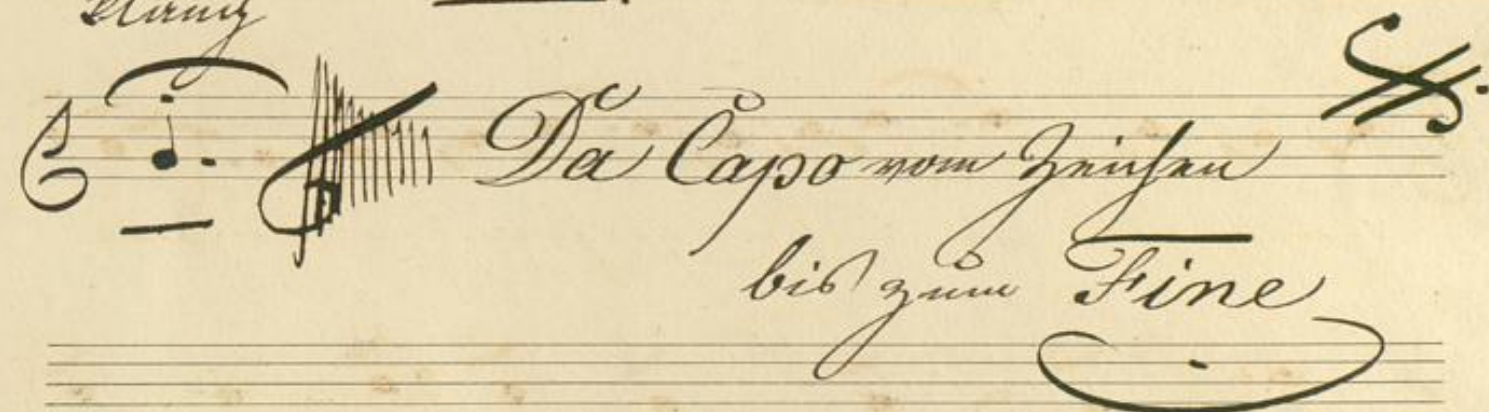 Klang
Da Capo vom Zeichen
bis zum Fine